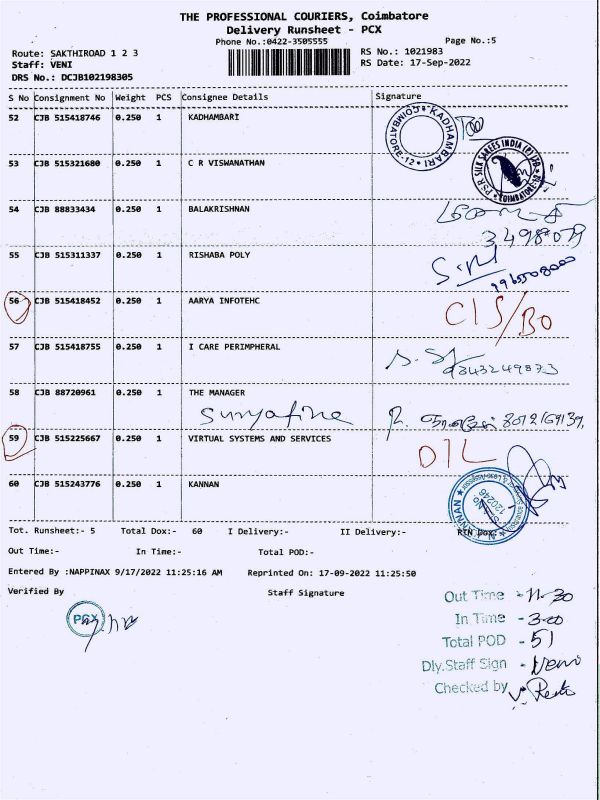 THE PROFESSIONAL COURIERS, Coimbatore
Delivery Runsheet - PCX
Phone No.:0422-3505555
Page No.:5
Route: SAKTHIROAD 1 2 3
RS No.: 1021983
Staff: VENI
RS Date: 17-Sep-2022
DRS No.: DCJB102198305
S No Consignment No Weight PCS Consignee Details Signature
52 CJB 515418746 0.250 1 KADHAMBARI
KADHAMBARI COIMBATORE-12
53 CJB 515321680 0.250 1 C R VISWANATHAN
PSR SILK SAREES INDIA (P) LTD. COIMBATORE
54 CJB 88833434 0.250 1 BALAKRISHNAN
55 CJB 515311337 0.250 1 RISHABA POLY
56 CJB 515418452 0.250 1 AARYA INFOTEHC
CIS/BO
57 CJB 515418755 0.250 1 I CARE PERIMPHERAL
58 CJB 88720961 0.250 1 THE MANAGER
Suryafine
59 CJB 515225667 0.250 1 VIRTUAL SYSTEMS AND SERVICES
DIL
60 CJB 515243776 0.250 1 KANNAN
Tot. Runsheet:- 5 Total Dox:- 60 I Delivery:- II Delivery:- RTN Dox:-
Out Time:- In Time:- Total POD:-
Entered By :NAPPINAX 9/17/2022 11:25:16 AM Reprinted On: 17-09-2022 11:25:50
Verified By Staff Signature
PCX
Out Time - 11-30
In Time - 3-00
Total POD - 51
Dly.Staff Sign - Veni
Checked by